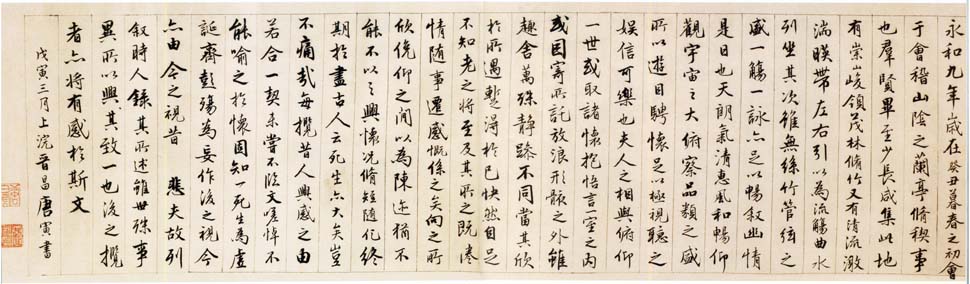 永和九年歲在癸丑暮春之初會
于會稽山陰之蘭亭脩稧事
也羣賢畢至少長咸集此地
有崇峻領茂林脩竹又有清流激
湍暎帶左右引以為流觴曲水
列坐其次雖無絲竹管弦之
盛一觴一詠亦足以暢叙幽情
是日也天朗氣清惠風和暢仰
觀宇宙之大俯察品類之盛
所以遊目騁懷足以極視聽之
娛信可樂也夫人之相與俯仰
一世或取諸懷抱悟言一室之內
或因寄所託放浪形骸之外雖
趣舍萬殊靜躁不同當其欣
於所遇暫得於己快然自足
不知老之將至及其所之既惓
情隨事遷感慨係之矣向之所
欣俛仰之間以為陳迹猶不
能不以之興懷況脩短隨化終
期於盡古人云死生亦大矣豈
不痛哉每攬昔人興感之由
若合一契未嘗不臨文嗟悼不
能喻之於懷固知一死生為虛
誕齊彭殤為妄作後之視今
亦由今之視昔 悲夫故列
叙時人錄其所述雖世殊事
異所以興其致一也後之攬
者亦將有感於斯文
戊寅三月上浣晉昌唐寅書